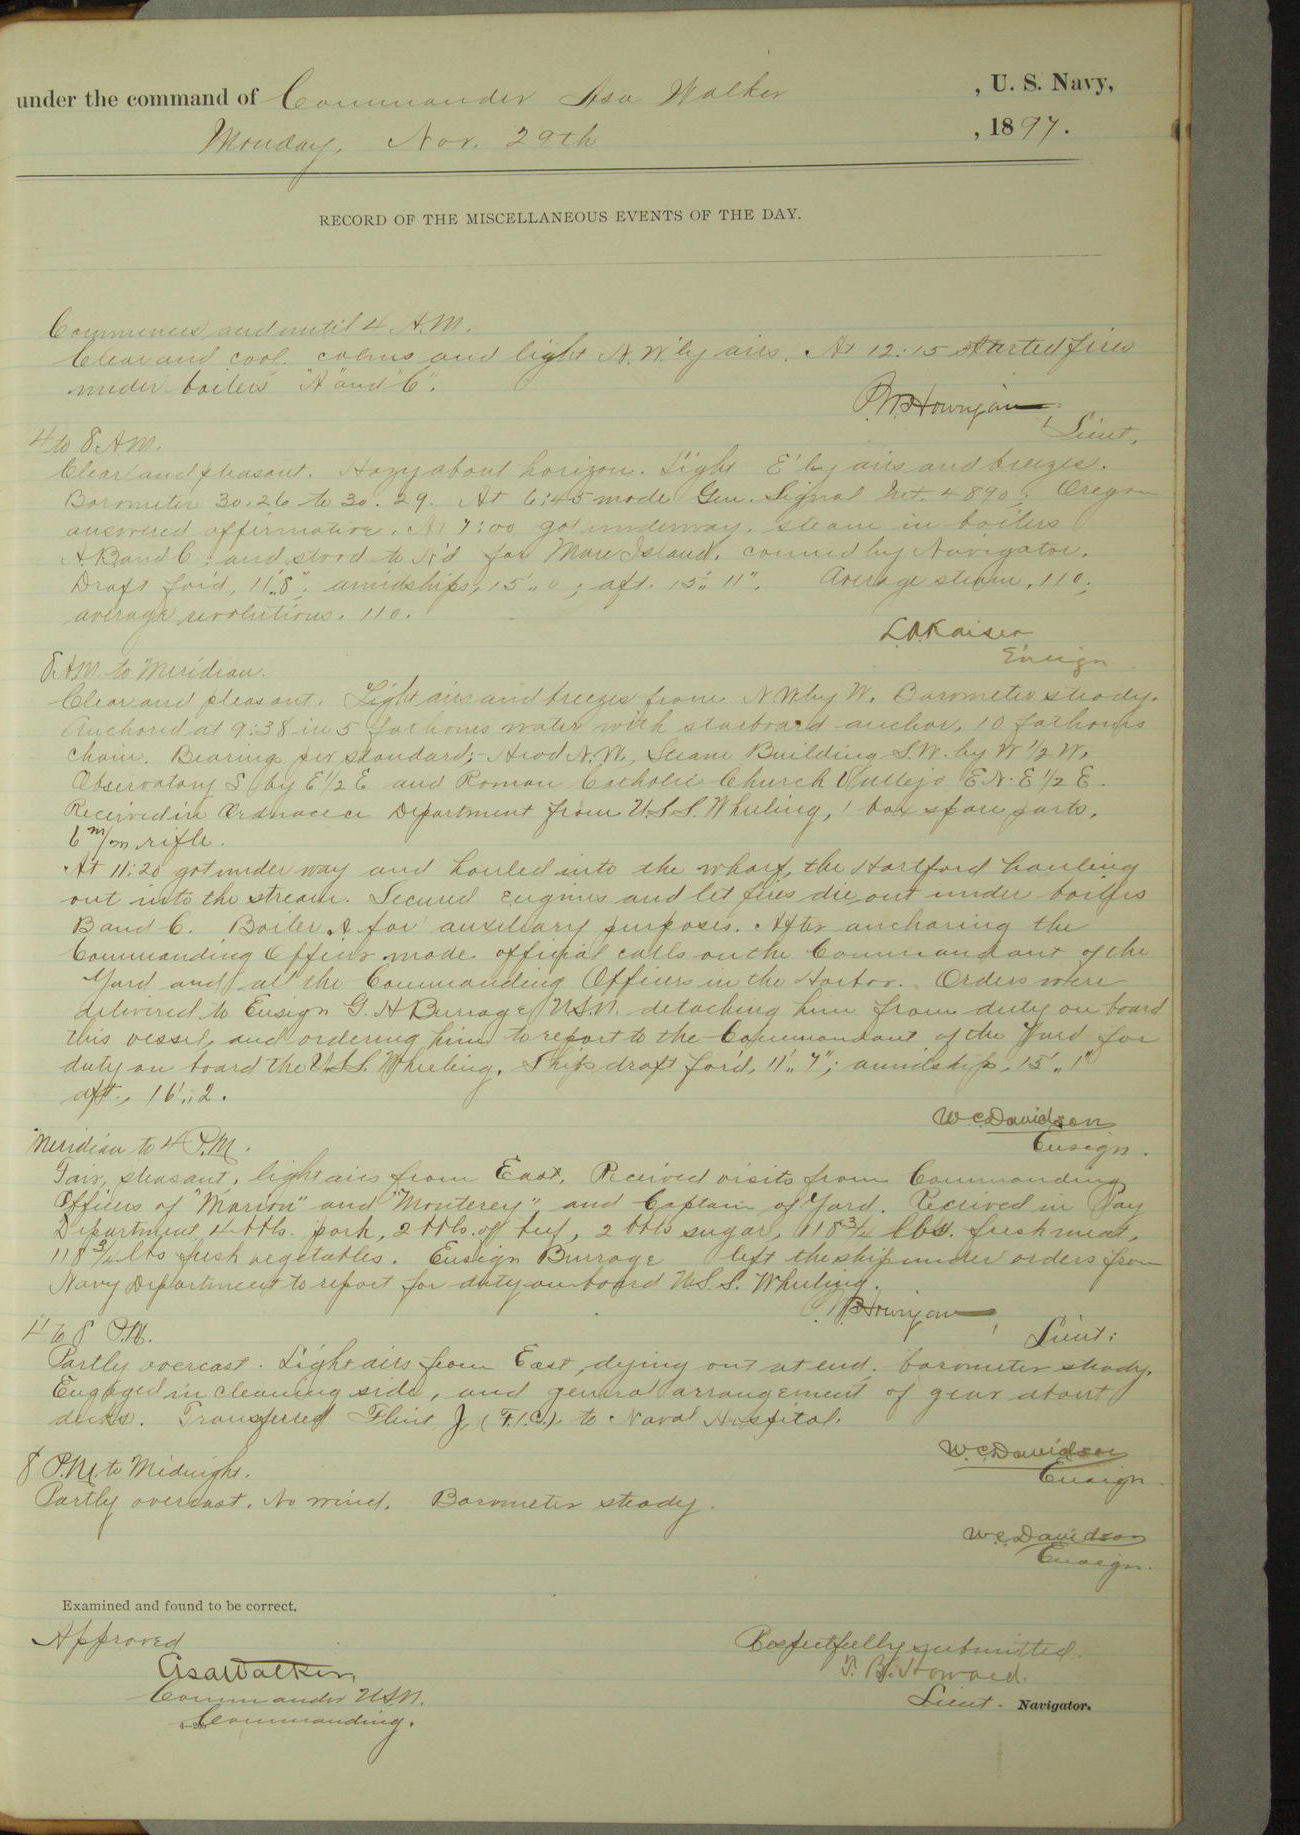 under the command of Commander Asa Walker, U. S. Navy,
Monday, Nov. 29th, 1897.
RECORD OF THE MISCELLANEOUS EVENTS OF THE DAY.
Commences and until 4 A.M.
Clear and cool. calms and light N.W'ly airs. At 12:15 started fires
under boilers "A" and "C".
Lieut.
4 to 8 A.M.
Clear and pleasant. Hazy about horizon. Light E'ly airs and breezes.
Barometer 30.26 to 30.29. At 6:45 made Gen. Signal Int. 4890; Oregon
answered affirmative. At 7:00 got underway, steam in boilers
A.B and C. and stood to N'd for Mare Island, conned by Navigator.
Draft for'd, 11'.8"; amidships, 15'.. 0; aft. 15'.. 11". Average steam, 110;
average revolutions. 110.
L.A. Kaiser
Ensign
8 A.M. to Meridian.
Clear and pleasant. Light airs and breezes from N W by W. Barometer steady.
Anchored at 9:38 in 5 fathoms water with starboard anchor, 10 fathoms
chain. Bearing per standard;- Head N.W., Steam Building S.W. by W 1/2 W,
Observatory S by E 1/2 E and Roman Catholic Church Vallejo E.N.E 1/2 E.
Received in Ordnance Department from U.S.S. Wheeling, 1 box spare parts,
6 m/m rifle.
At 11:20 got under way and hauled into the wharf, the Hartford hauling
out into the stream. Secured engines and let fires die out under boilers
B and C. Boiler A for auxiliary purposes. After anchoring the
Commanding Officer made official calls on the Commandant of the
Yard and all the Commanding Officers in the Harbor. Orders were
delivered to Ensign G. H Burrage, U.S.N. detaching him from duty on board
this vessel, and ordering him to report to the Commandant of the Yard for
duty on board the U.S.S. Wheeling. Ship's draft for'd, 11'.. 7"; amidship, 15'.. 1"
aft., 16'.. 2.
W. C. Davidson
Ensign.
Meridian to 4 P.M.
Fair, pleasant, light airs from East. Received visits from Commanding
Officers of "Marion" and "Monterey", and Captain of Yard. Received in Pay
Department 4 bbls. pork, 2 bbls. of beef, 2 bbls sugar, 118 3/4 lbs. fresh meat,
118 3/4 lbs fresh vegetables. Ensign Burrage left the ship under orders from
Navy Department to report for duty on board U.S.S. Wheeling.
Lieut:
4 to 8 P.M.
Partly overcast. Light airs from East, dying out at end, barometer steady.
Engaged in cleaning side, and general arrangement of gear about
decks. Transferred Flint, J, (F.1.C.) to Naval Hospital.
W. C. Davidson
Ensign
8 P.M. to Midnight.
Partly overcast. No wind. Barometer steady.
W. C. Davidson
Ensign.
Examined and found to be correct.
Approved
Asa Walker,
Commander U.S.N.
Commanding.
Respectfully submitted.
T. B. Howard
Lieut. Navigator.